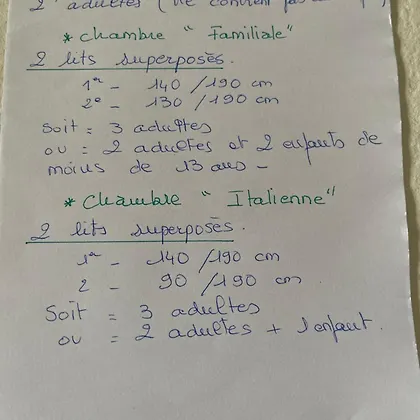 2 adultes (ne convient pas
* Chambre " Familiale"
2 lits superposés.
1er - 140 / 190 cm
2e - 130 / 190 cm
Soit = 3 adultes
ou = 2 adultes et 2 enfants de
moins de 13 ans -
* Chambre " Italienne"
2 lits superposés.
1er - 140 / 190 cm
2 - 90 / 190 cm
Soit = 3 adultes
ou = 2 adultes + 1 enfant.